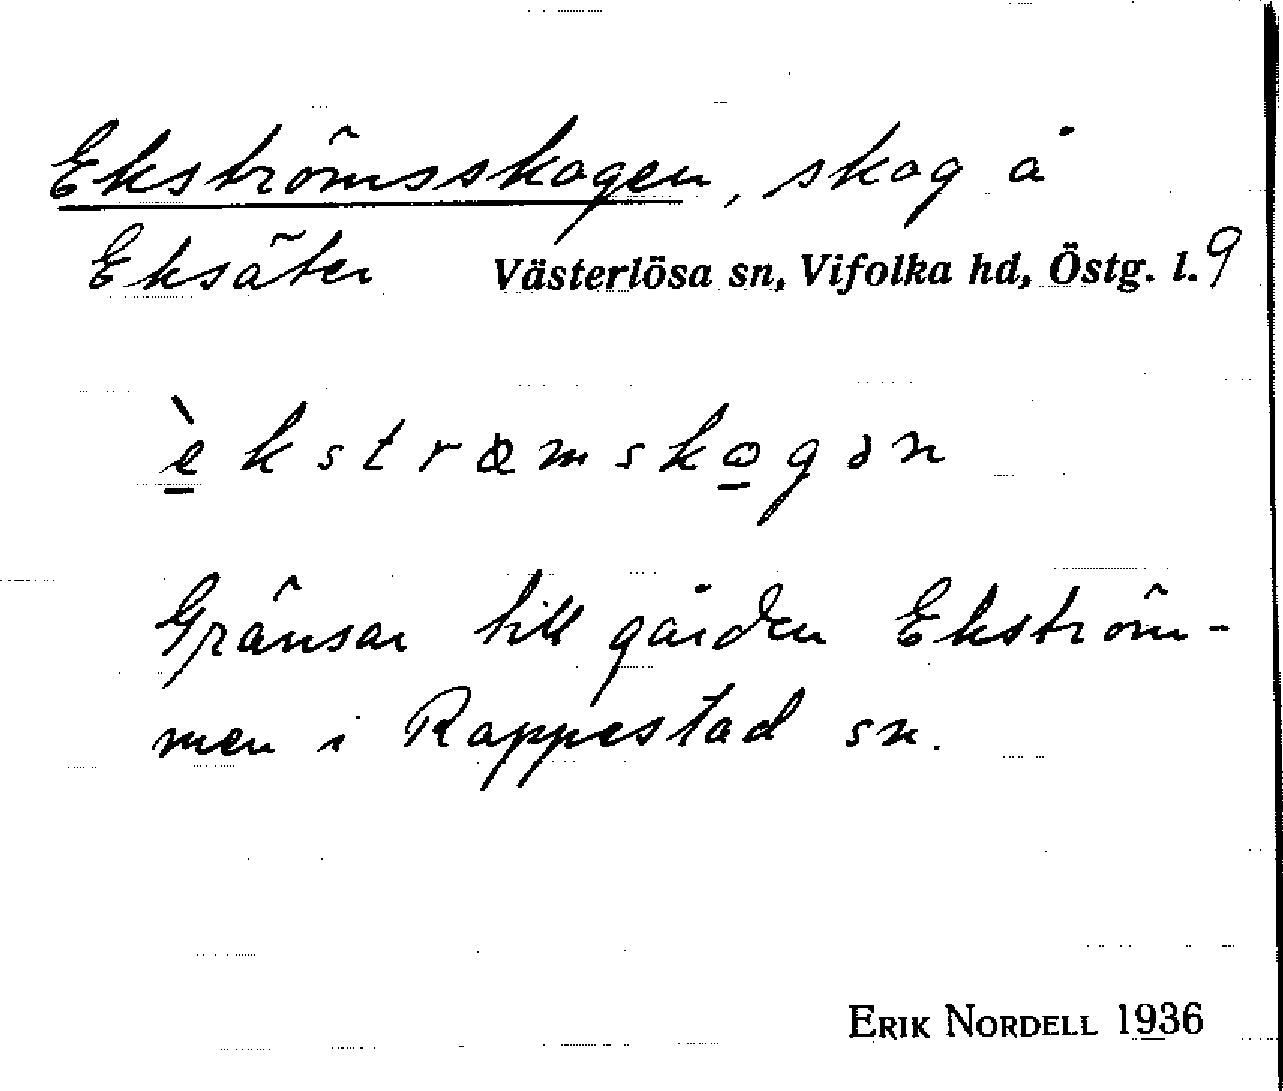 Ekströmsskogen, skog å
Eksäter Västerlösa sn, Vifolka hd, Östg. l. 9
è̱kstrœmsko̱gən
Gränsar till gården Ekström-
men i Rappestad sn.
ERIK NORDELL 1936